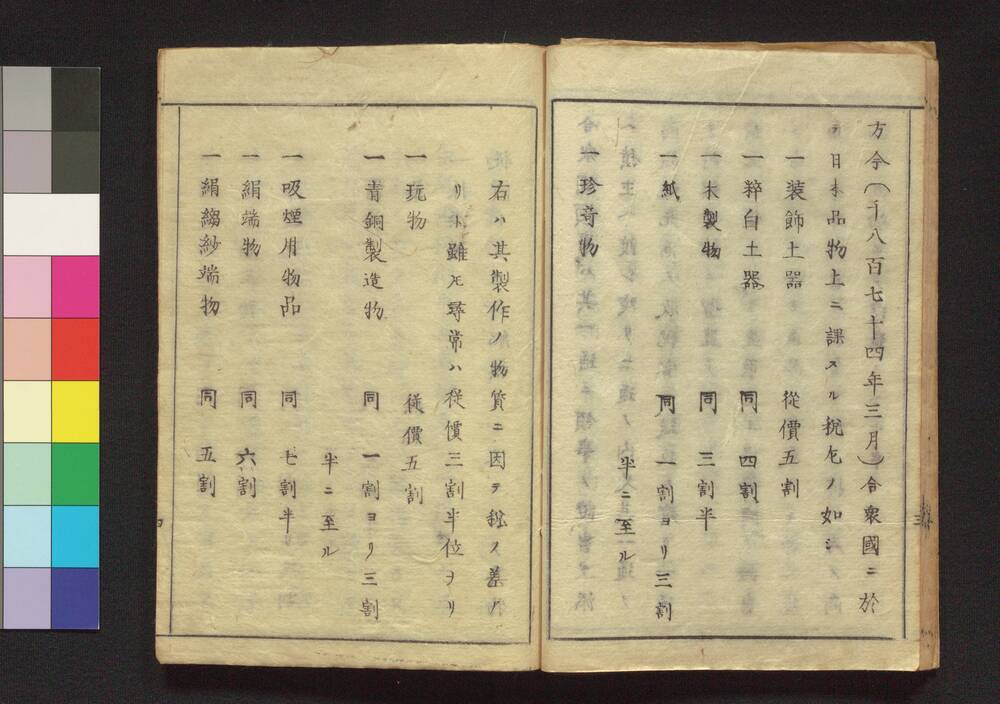 方今(千八百七十四年三月)合衆國ニ於
テ日本品物上ニ課スル税左ノ如シ
一装飾土器 從價五割
一粹白土器 同 四割
一木製物 同 三割半
一紙 同 一割ヨリ三割
半ニ至ル
一珍奇物
右ハ其製作ノ物質ニ因テ税ノ差ハ
リト雖𪜈尋常ハ從價三割半位ヲリ
一玩物 從價五割
一青銅製造物 同 一割ヨリ三割
半ニ至ル
一吸煙用物品 同 七割半
一絹端物 同 六割
一絹縐紗端物 同 五割